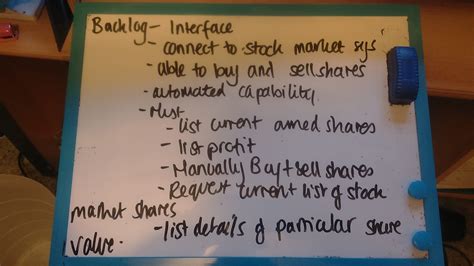 Backlog - Interface
- connect to stock market sys
- able to buy and sell shares
- automated capability
- Must
- list current owned shares
- list profit
- Manually Buy + sell shares
- Request current list of stock
market shares
- list details of particular share
value.